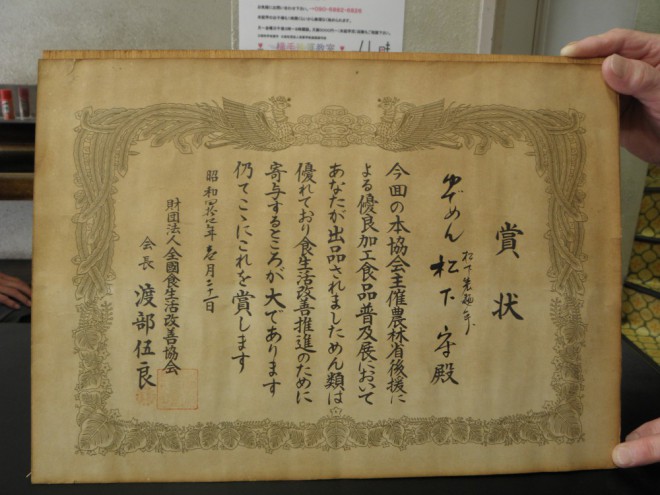 賞状
ゆでめん
松下製麺所
松下 守殿
今回の本協会主催農林省後援に
よる優良加工食品普及展において
あなたが出品されましためん類は
優れており食生活改善推進のために
寄与するところが大であります
仍てここにこれを賞します
昭和
月二十一日
財団法人全國食生活改善協会
会長 渡部伍良